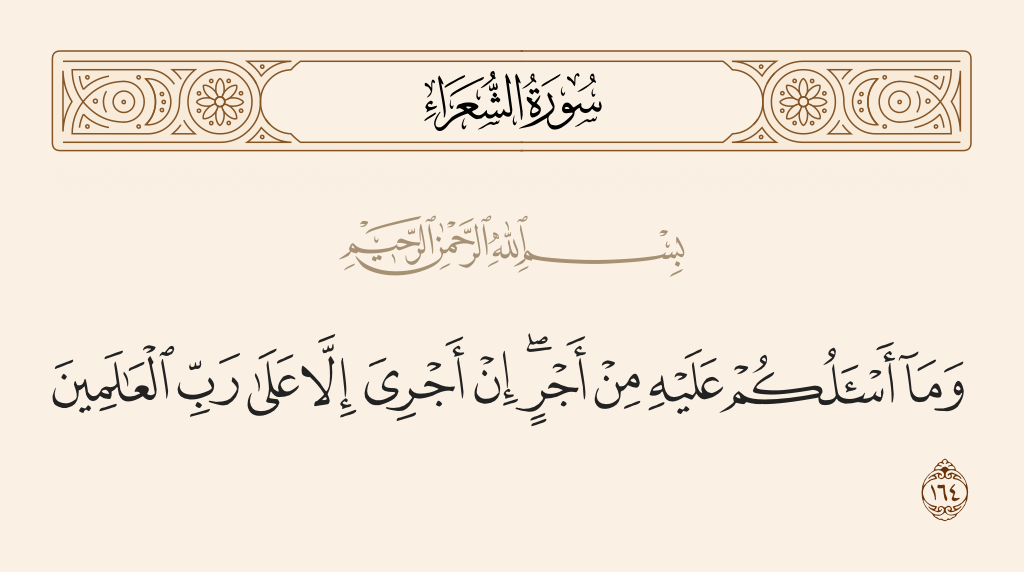 سُورَةُ الشُّعَرَاءِ
بِسْمِ ٱللَّهِ ٱلرَّحْمَٰنِ ٱلرَّحِيمِ
وَمَآ أَسْـَٔلُكُمْ عَلَيْهِ مِنْ أَجْرٍ ۖ إِنْ أَجْرِىَ إِلَّا عَلَىٰ رَبِّ ٱلْعَـٰلَمِينَ
١٦٤